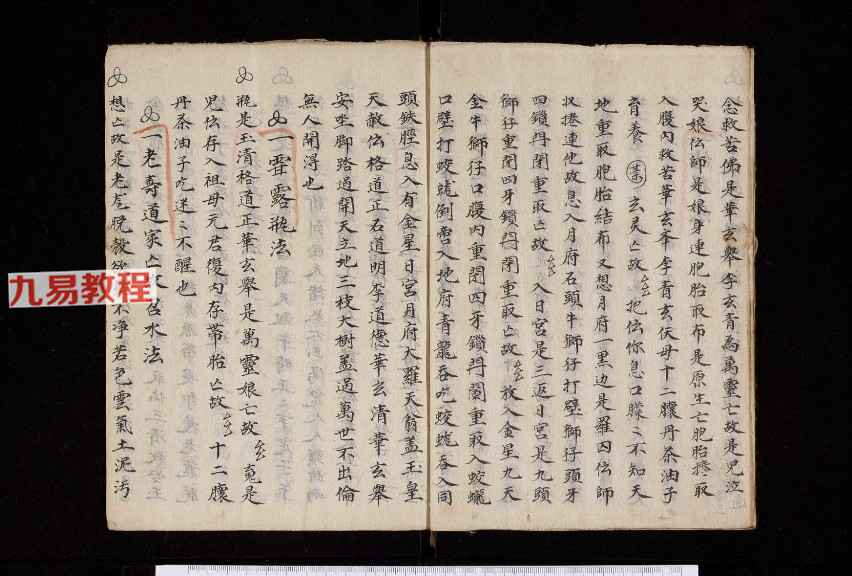 念救苦佛是華玄舉李玄青為萬靈亡故是兒泣
哭娘伝師是娘身連胞胎取布是原生亡胞胎 取
入腹內救苦華玄舉李青玄伏母十二 丹茶油子
育養 玄灵亡故 把伝你息口矇〻不知天
地重取胞胎結布又想月府一黑边是羅囚伝師
収捲連他故息入月府石頭牛獅仔打壁獅仔頭牙
四鎖門閉重取亡故 入日宮是三返日宮是九頭
獅仔重閉四牙鎖門閉重取亡故 放入金星九天
金牛獅仔口腹內重閉四牙鎖門 重取入蛟蠟
口壁打蛟 倒 入地府青龍吞吃蛟 吞入同
頭鉄 息入有金星日宮月府大羅天翁盖玉皇
天敕伝格道正右道明李道德華玄清華玄舉
安坐脚踏過開天立地三枝大樹盖過萬世不出倫
無人開得也
一 露瓶法
瓶是玉清格道正華玄舉是萬靈娘亡故 是
兒伝存入祖母元君復內存帶胎亡故 十二
丹茶油子吃迷〻不醒也
一老壽道家亡 水法
想亡故是老 不净若色雲氣土泥污
九易教程